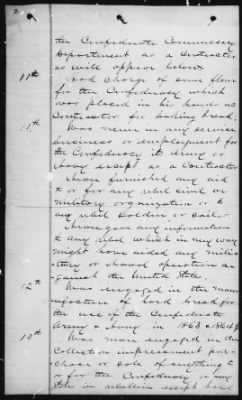 the Confederate Commissary
Department as a Contractor
as will appear below
10th Had charge of some flour
for the Confederacy which
was placed in his hands as
Contractor for baking bread.
11th Was never in any service
business or employment for
the Confederacy its Army or
Navy except as a Contractor
Never furnished any aid
to or for any rebel civil or
military organization or to
any rebel soldier or sailor.
Never gave any information
to any rebel which in any way
might have aided any military
or naval operation against
the United States.
12th Was engaged in the manufacture
of hard bread for
the use of the Confederate
Army & Navy in 1863 & 1864
13th Was never engaged in the
Collection impressment purchase
or sale of anything to
or for the Confederacy or any
State in rebellion except hard